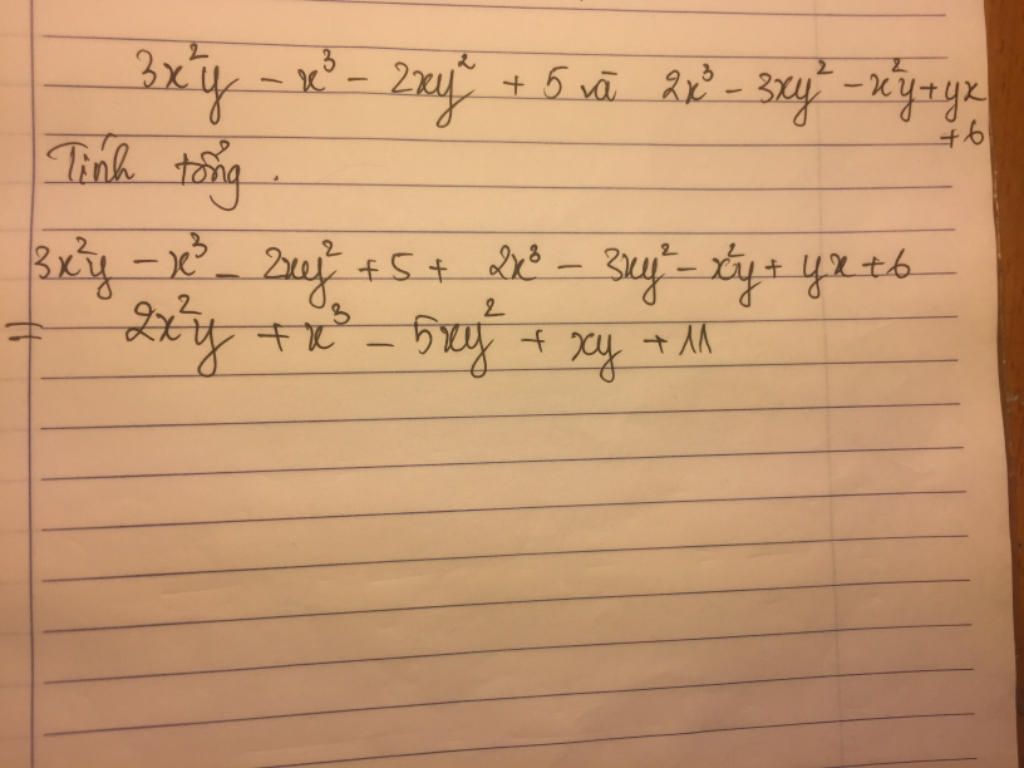 3x²y - x³ - 2xy² + 5 và 2x³ - 3xy² - x²y + yx
+6
Tính tổng.
3x²y - x³ - 2xy² + 5 + 2x³ - 3xy² - x²y + yx + 6
= 2x²y + x³ - 5xy² + xy + 11